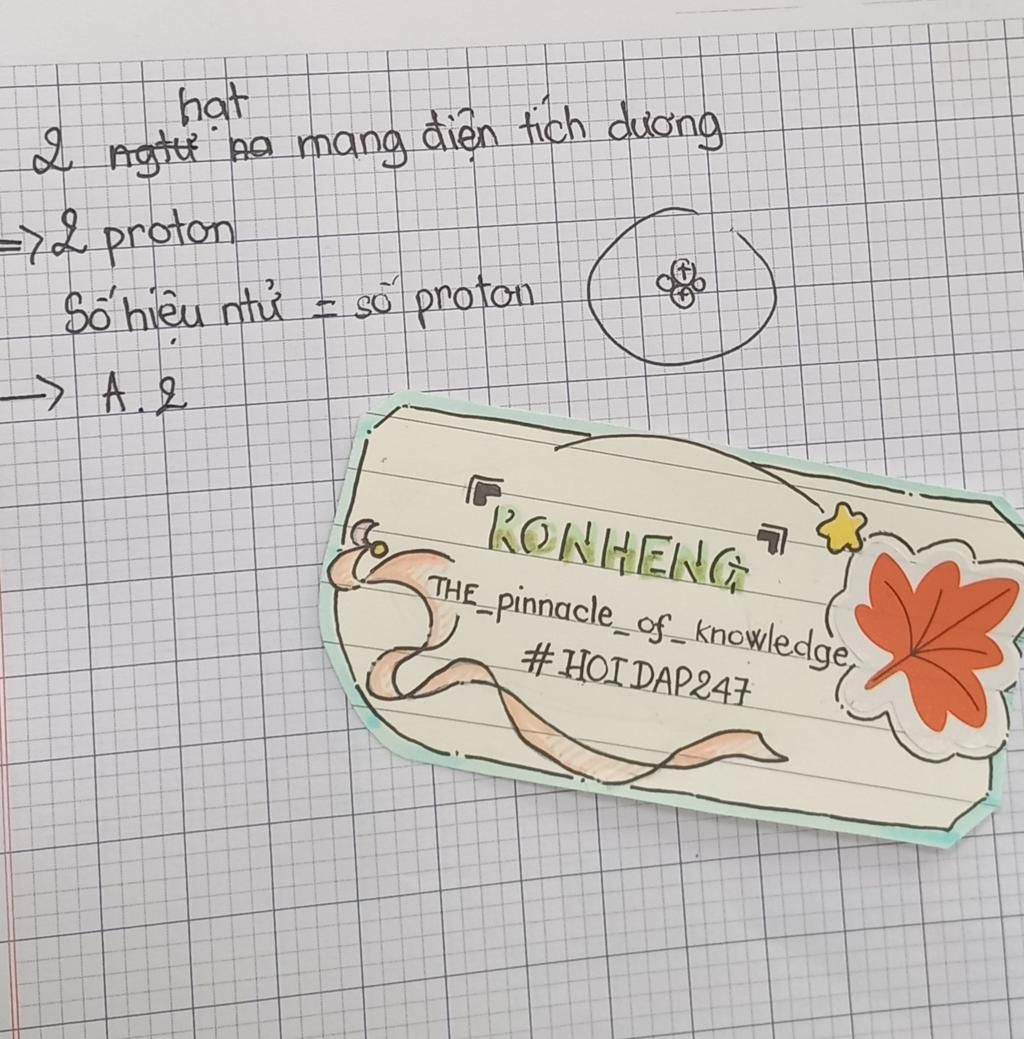 hạt
2 ngtử na mang điện tích dương
=> 2 proton
Số hiệu ntử = số proton
→ A. 2
+
+
『KONHENG』
THE_pinnacle_of_knowledge
#HOIDAP247